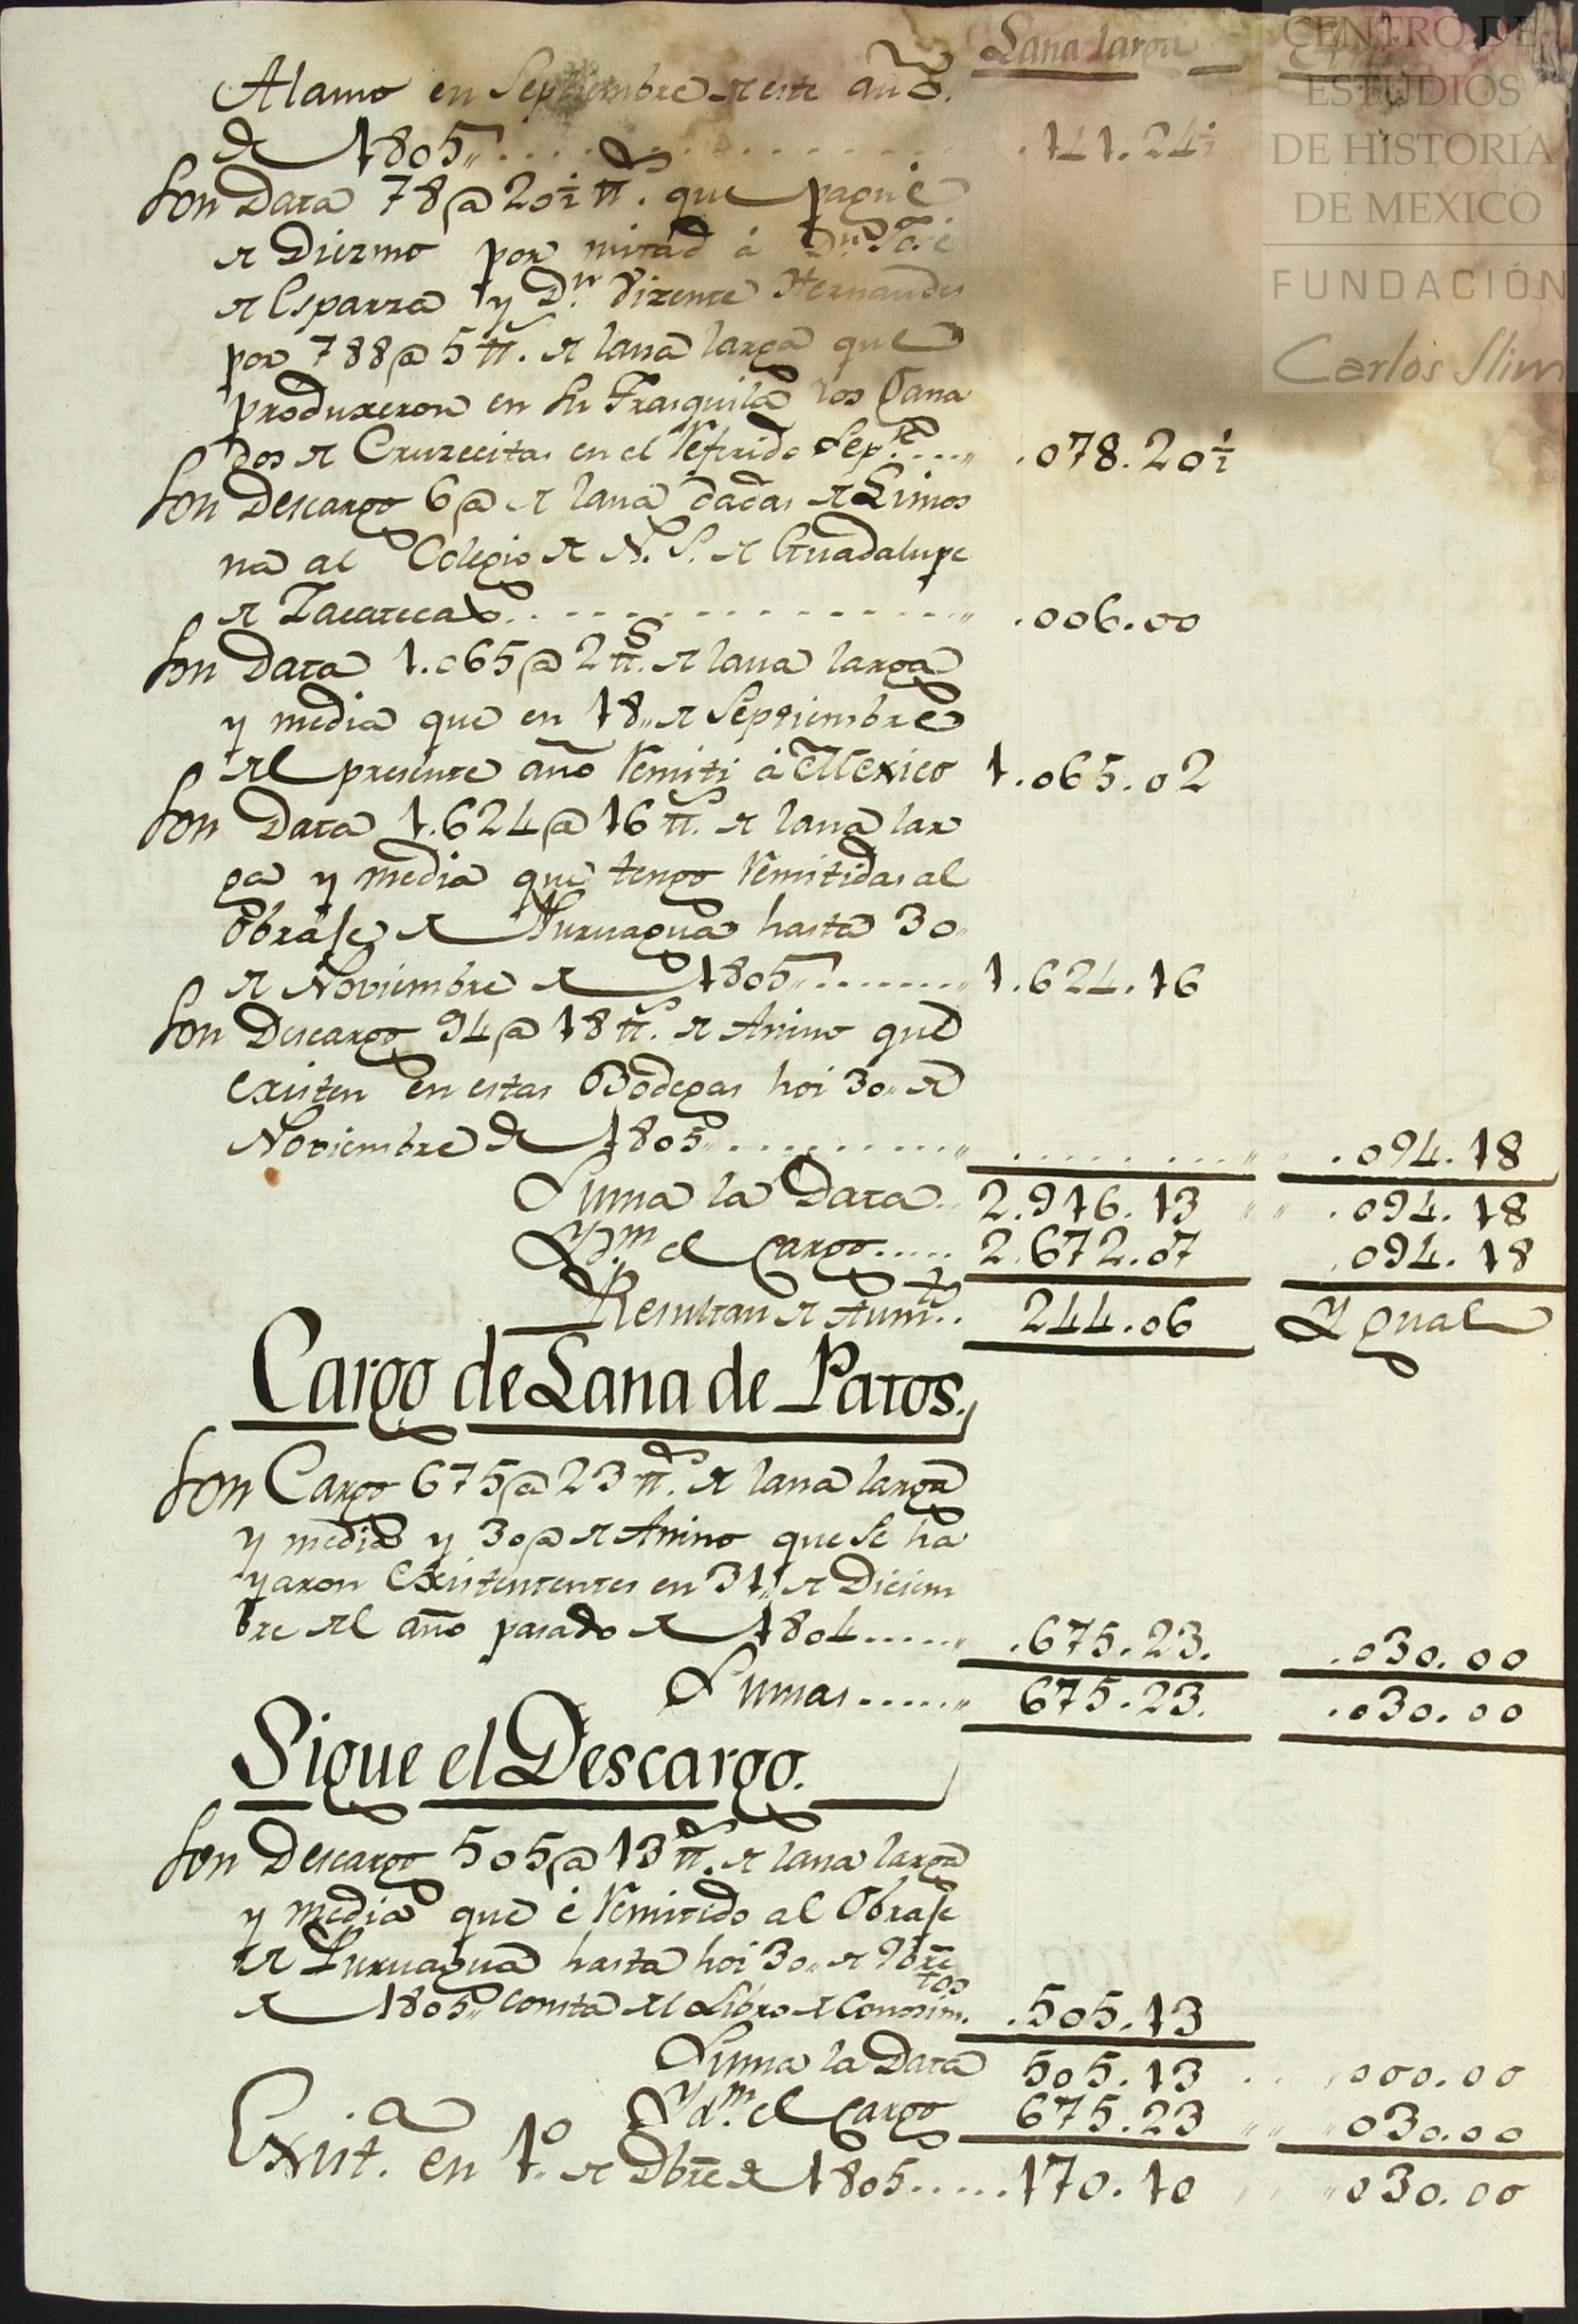 Lana larga
Alamo en Septiembre de este año
de 1805,, .141.24½
Son Data 78@20½ ℔s. que pagué
de Diezmo por mitad á Dn. José
de Esparza y Dn. Vizente Hernandes
por 788@5 ℔s. de lana larga que
produxeron en su Trasquila los Gana
dos de Cruzecitas en el referido Sepre. .078.20½
Son Descargo 6@ de lana dadas de Limos
na al Colegio de N. S. de Guadalupe
de Zacatecas .006.00
Son Data 1.065@2 ℔s. de lana larga
y media que en 18,, de Septiembre
del presente año remití á Mexico 1.065.02
Son Data 1.624@16 ℔s. de lana lar
ga y media que tengo remitidas al
Obraje de Puruagua hasta 30,,
de Noviembre de 1805,, 1.624.16
Son Descargo 94@18 ℔s. de Anino que
existen en estas Bodegas hoi 30,, de
Noviembre de 1805,, .094.18
Suma la Data 2.916.13 .094.18
Ydm. el Cargo 2.672.07 .094.18
Resultan de Aumto. 244.06 Ygual
Cargo de Lana de Patos.
Son Cargo 675@23 ℔s. de lana larga
y media y 30@ de Anino que se ha
yaron Existententes en 31,, de Diciem
bre del año pasado de 1804 .675.23. .030.00
Sumas 675.23. .030.00
Sigue el Descargo.
Son Descargo 505@13 ℔s. de lana larga
y media que é remitido al Obraje
de Puruagua hasta hoi 30,, de 9bre
de 1805,, consta del Libro de Conosimtos. .505.13
Suma la Data 505.13 000.00
Ydm. el Cargo 675.23 030.00
Exista. en 1o. de Dbre de 1805 170.10 030.00
CENTRO DE
ESTUDIOS
DE HISTORIA
DE MEXICO
FUNDACIÓN
Carlos Slim